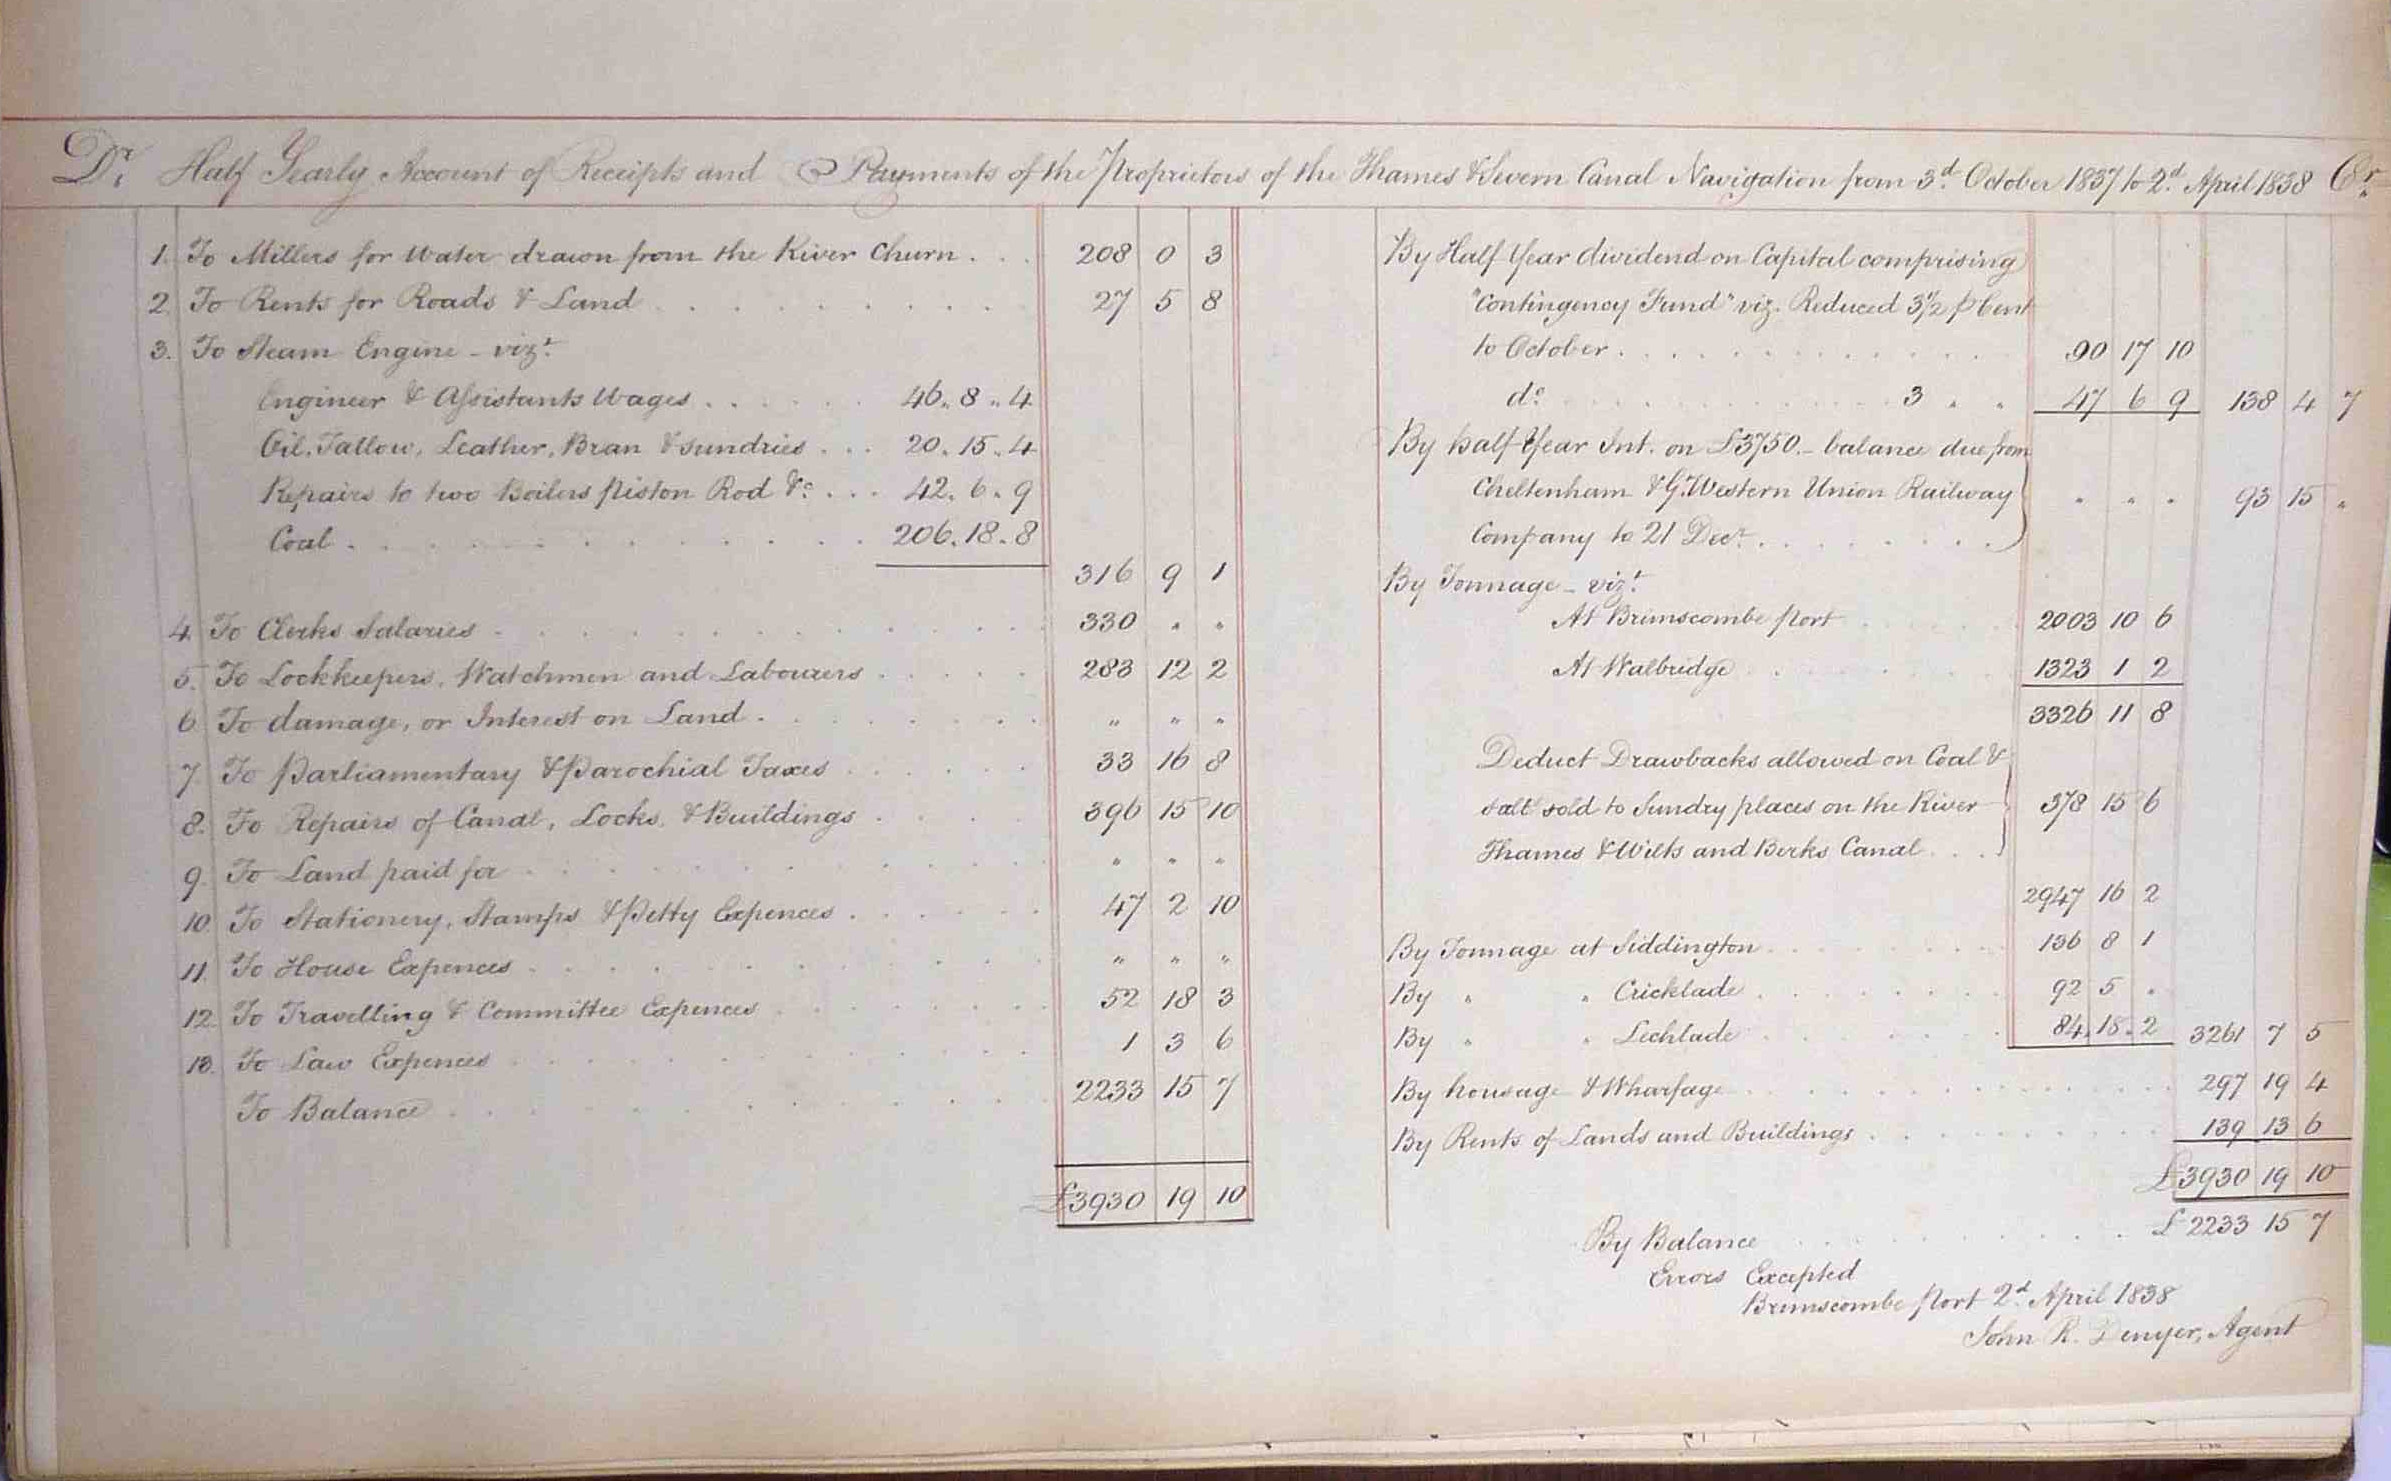 Dr. Half Yearly Account of Receipts and Payments of the Proprietors of the Thames & Severn Canal Navigation from 3d. October 1837 to 2d. April 1838 Cr.
1. To Millers for Water drawn from the River Churn . . . 208 0 3
2. To Rents for Roads & Land . . . 27 5 8
3. To Steam Engine - vizt.
Engineer & Assistants Wages . . . 46 " 8 " 4
Oil, Tallow, Leather, Bran & sundries . . . 20 " 15 " 4
Repairs to two Boilers piston Rod &c. . . . 42 " 6 " 9
Coal . . . 206 " 18 " 8
316 9 1
4. To Clerks Salaries . . . 330 " "
5. To Lockkeepers, Watchmen and Labourers . . . 283 12 2
6. To damage, or Interest on Land . . . " " "
7. To Parliamentary & Parochial Taxes . . . 33 16 8
8. To Repairs of Canal, Locks, & Buildings . . . 396 15 10
9. To Land paid for . . . " " "
10. To Stationery, Stamps & Petty Expences . . . 47 2 10
11. To House Expences . . . " " "
12. To Travelling & Committee Expences . . . 52 18 3
13. To Law Expences . . . 1 3 6
To Balance . . . 2233 15 7
£3930 19 10
By Half Year dividend on Capital comprising
"Contingency Fund" viz. Reduced 3 1/2 p Cent
to October . . . 90 17 10
do. . . . 3 " " 47 6 9 138 4 7
By half Year Int. on £3750. - balance due from
Cheltenham & G. Western Union Railway " " " 93 15 "
Company to 21 Decr. . . .
By Tonnage - vizt.
At Brimscombe Port . . . 2003 10 6
At Walbridge . . . 1323 1 2
3326 11 8
Deduct Drawbacks allowed on Coal &
salt sold to Sundry places on the River 378 15 6
Thames & Wilts and Berks Canal . . .
2947 16 2
By Tonnage at Siddington . . . 136 8 1
By " " Cricklade . . . 92 5 "
By " " Lechlade . . . 84 " 18 " 2 3261 7 5
By housage & Wharfage . . . 297 19 4
By Rents of Lands and Buildings . . . 139 13 6
£3930 19 10
By Balance . . . £2233 15 7
Errors Excepted
Brimscombe Port 2d. April 1838
John R. Denyer, Agent